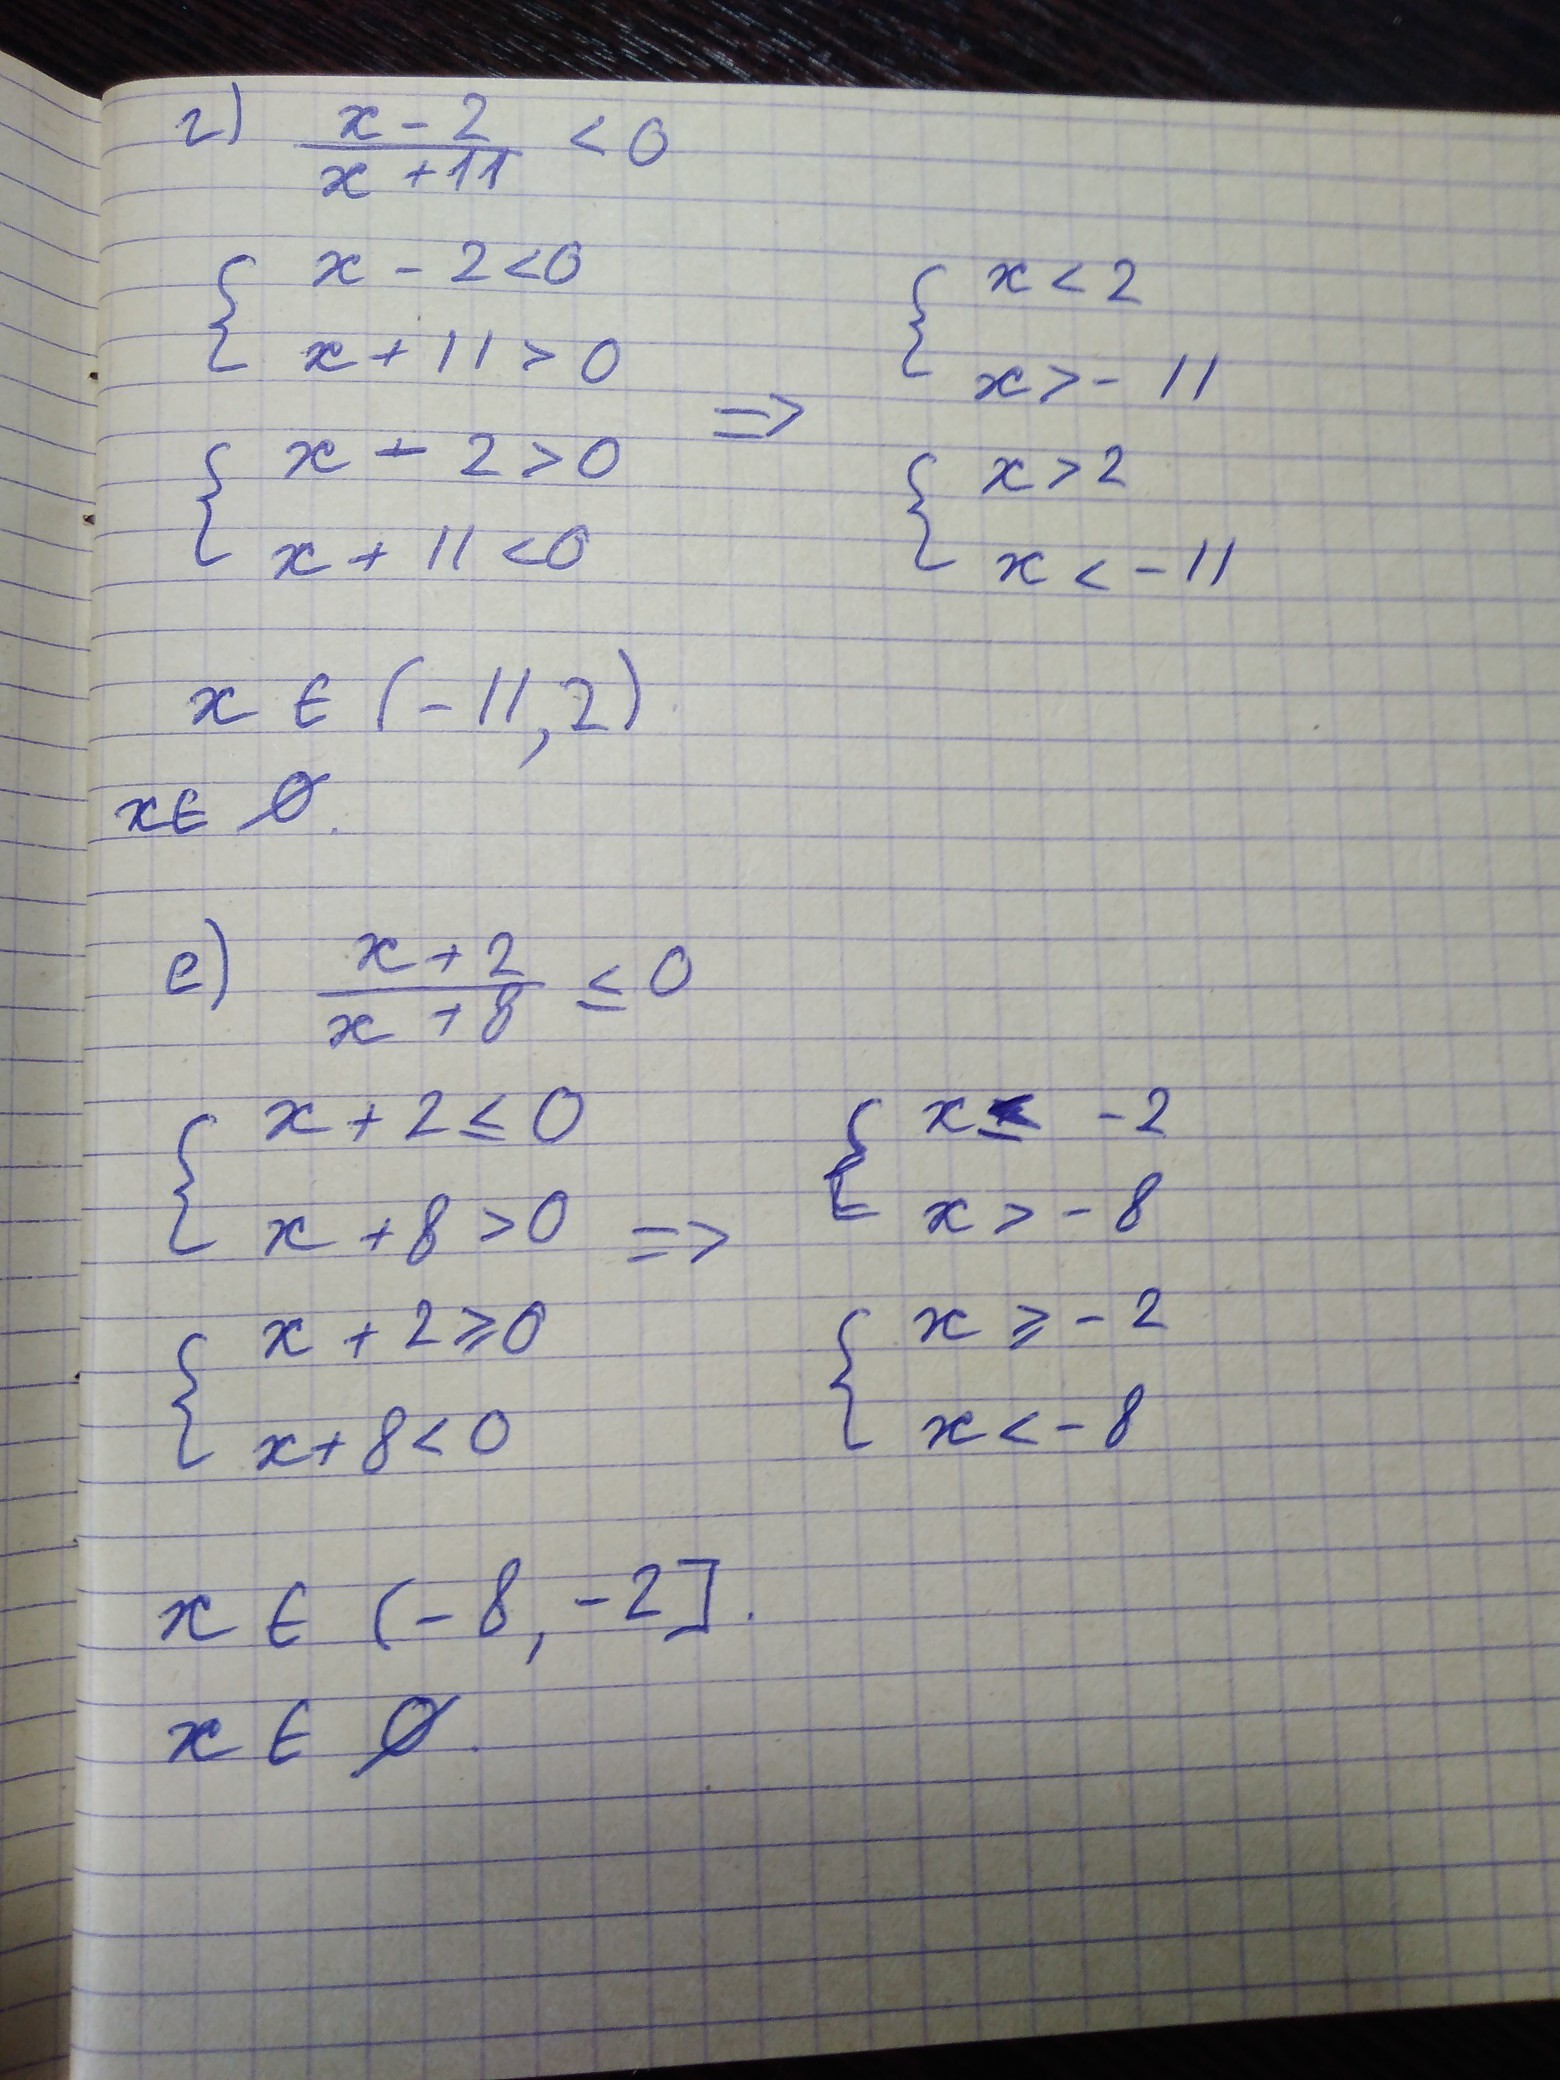 г) (x - 2)/(x + 11) < 0
{ x - 2 < 0
x + 11 > 0
{ x - 2 > 0
x + 11 < 0
=>
{ x < 2
x > - 11
{ x > 2
x < - 11
x ∈ (- 11, 2)
x ∈ ∅.
е) (x + 2)/(x + 8) ≤ 0
{ x + 2 ≤ 0
x + 8 > 0
{ x + 2 ≥ 0
x + 8 < 0
=>
{ x ≤ - 2
x > - 8
{ x ≥ - 2
x < - 8
x ∈ (- 8, - 2].
x ∈ ∅.